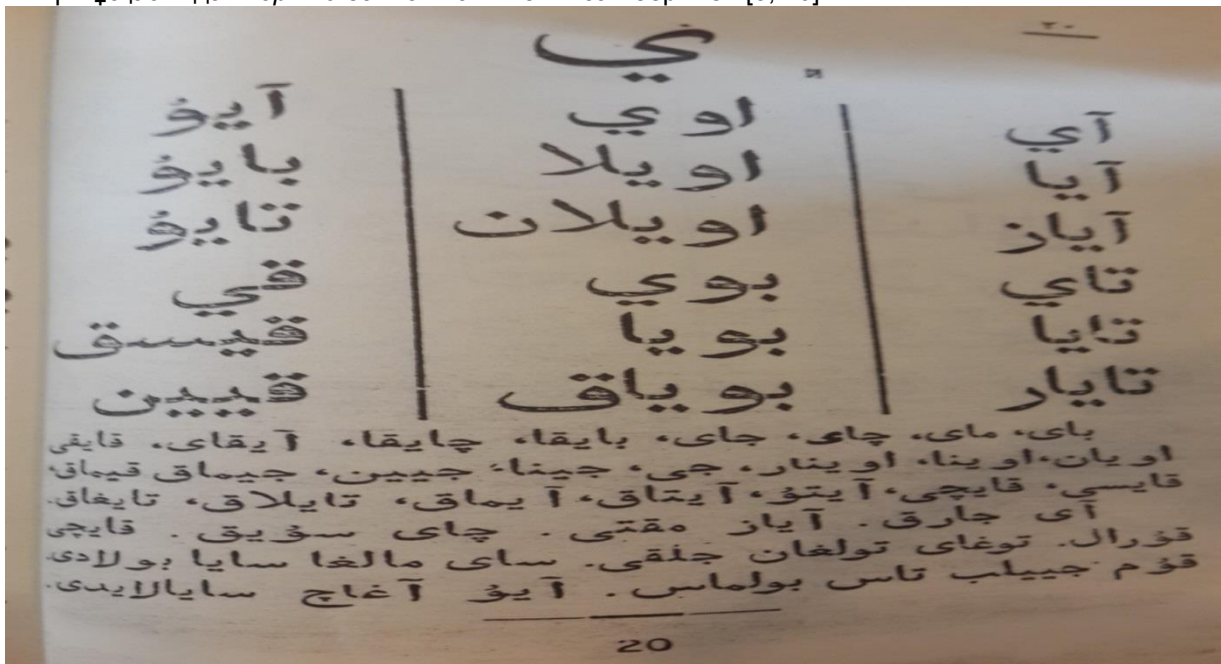 ٢٠
ي
آي
آيا
آياز
تاي
تايا
تايار
اوي
اويلا
اويلان
بوي
بويا
بوياق
آيۇ
بايۇ
تايۇ
قي
قيسق
قيين
باى، ماى، چاى، جاى، بايقا، چايقا، آيقاى، قايقى
اويان،اوينا، اوينار، جى، جينا، جيين، جيماق قيماق،
قايسى، قايچى، آيتۇ، آيتاق، آيماق، تايلاق، تايغاق.
آى جارق. آياز مقتى. چاى سۇيق. قايچى
قۇرال. توغاى تولغان جلقى. ساى مالغا سايا بولادى
قۇم جييلب تاس بولماس. آيۇ آغاچ سايالايدى.
20